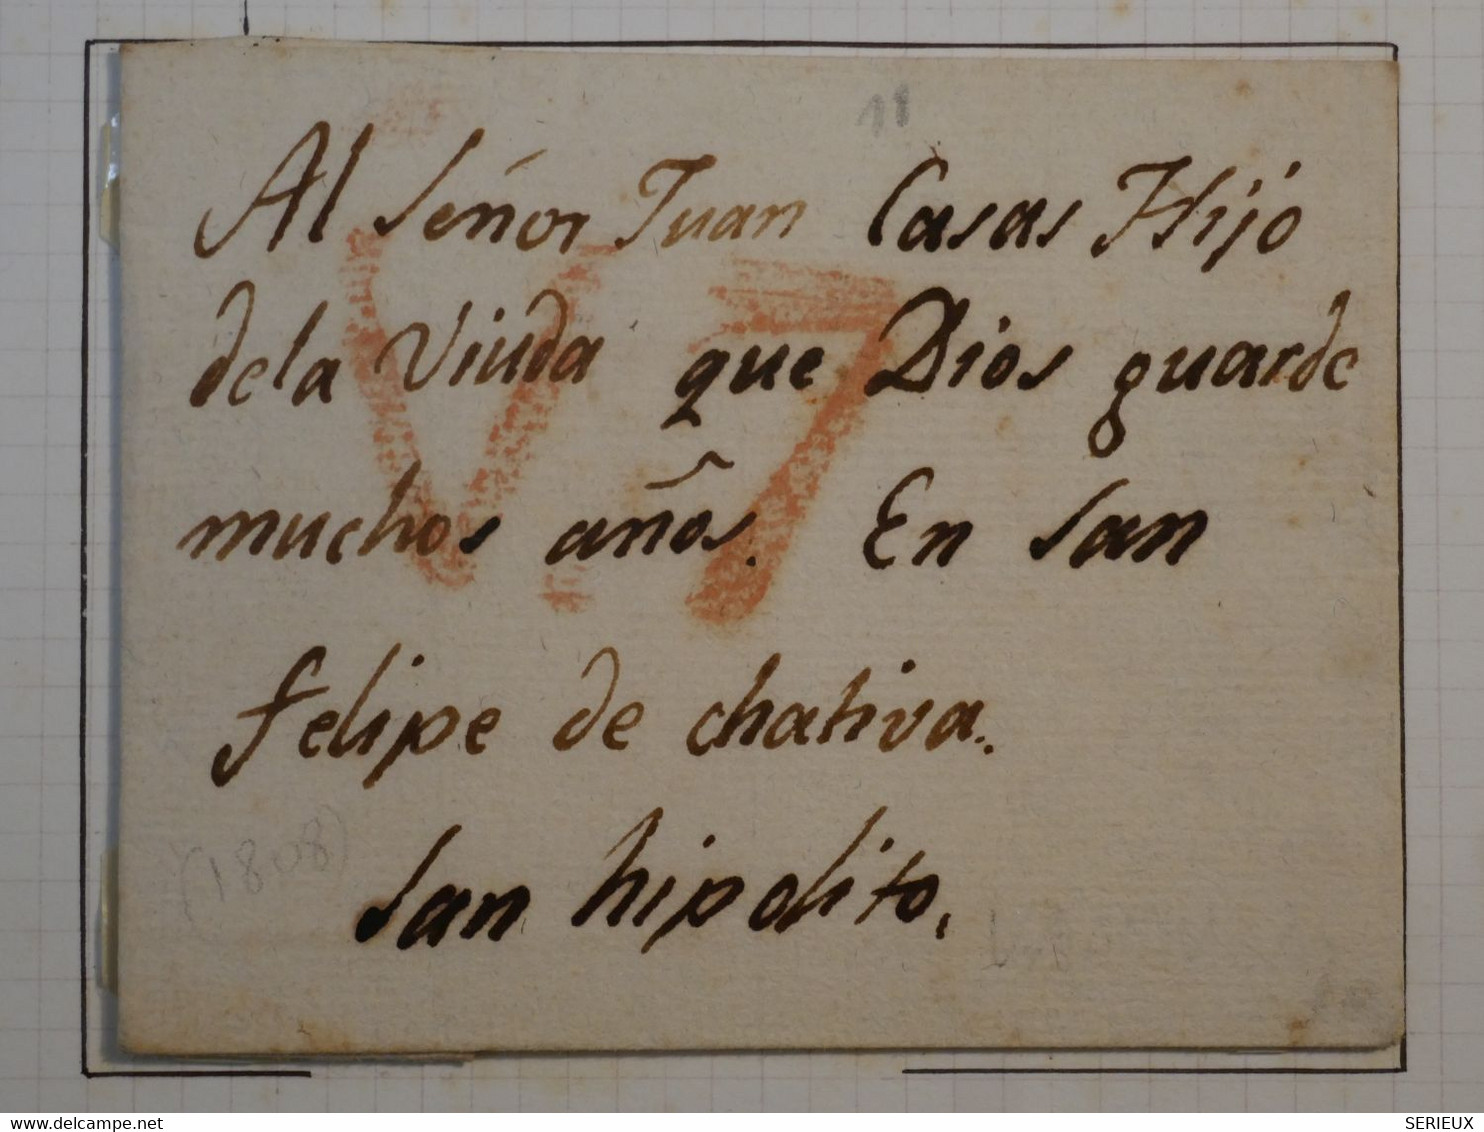 18
Al Señor Juan Casas Hijo
de la Viuda que Dios guarde
muchos años. En San
Felipe de chativa..
San hipolito.
V.7
(1808)
www.delcampe.net
SERIEUX